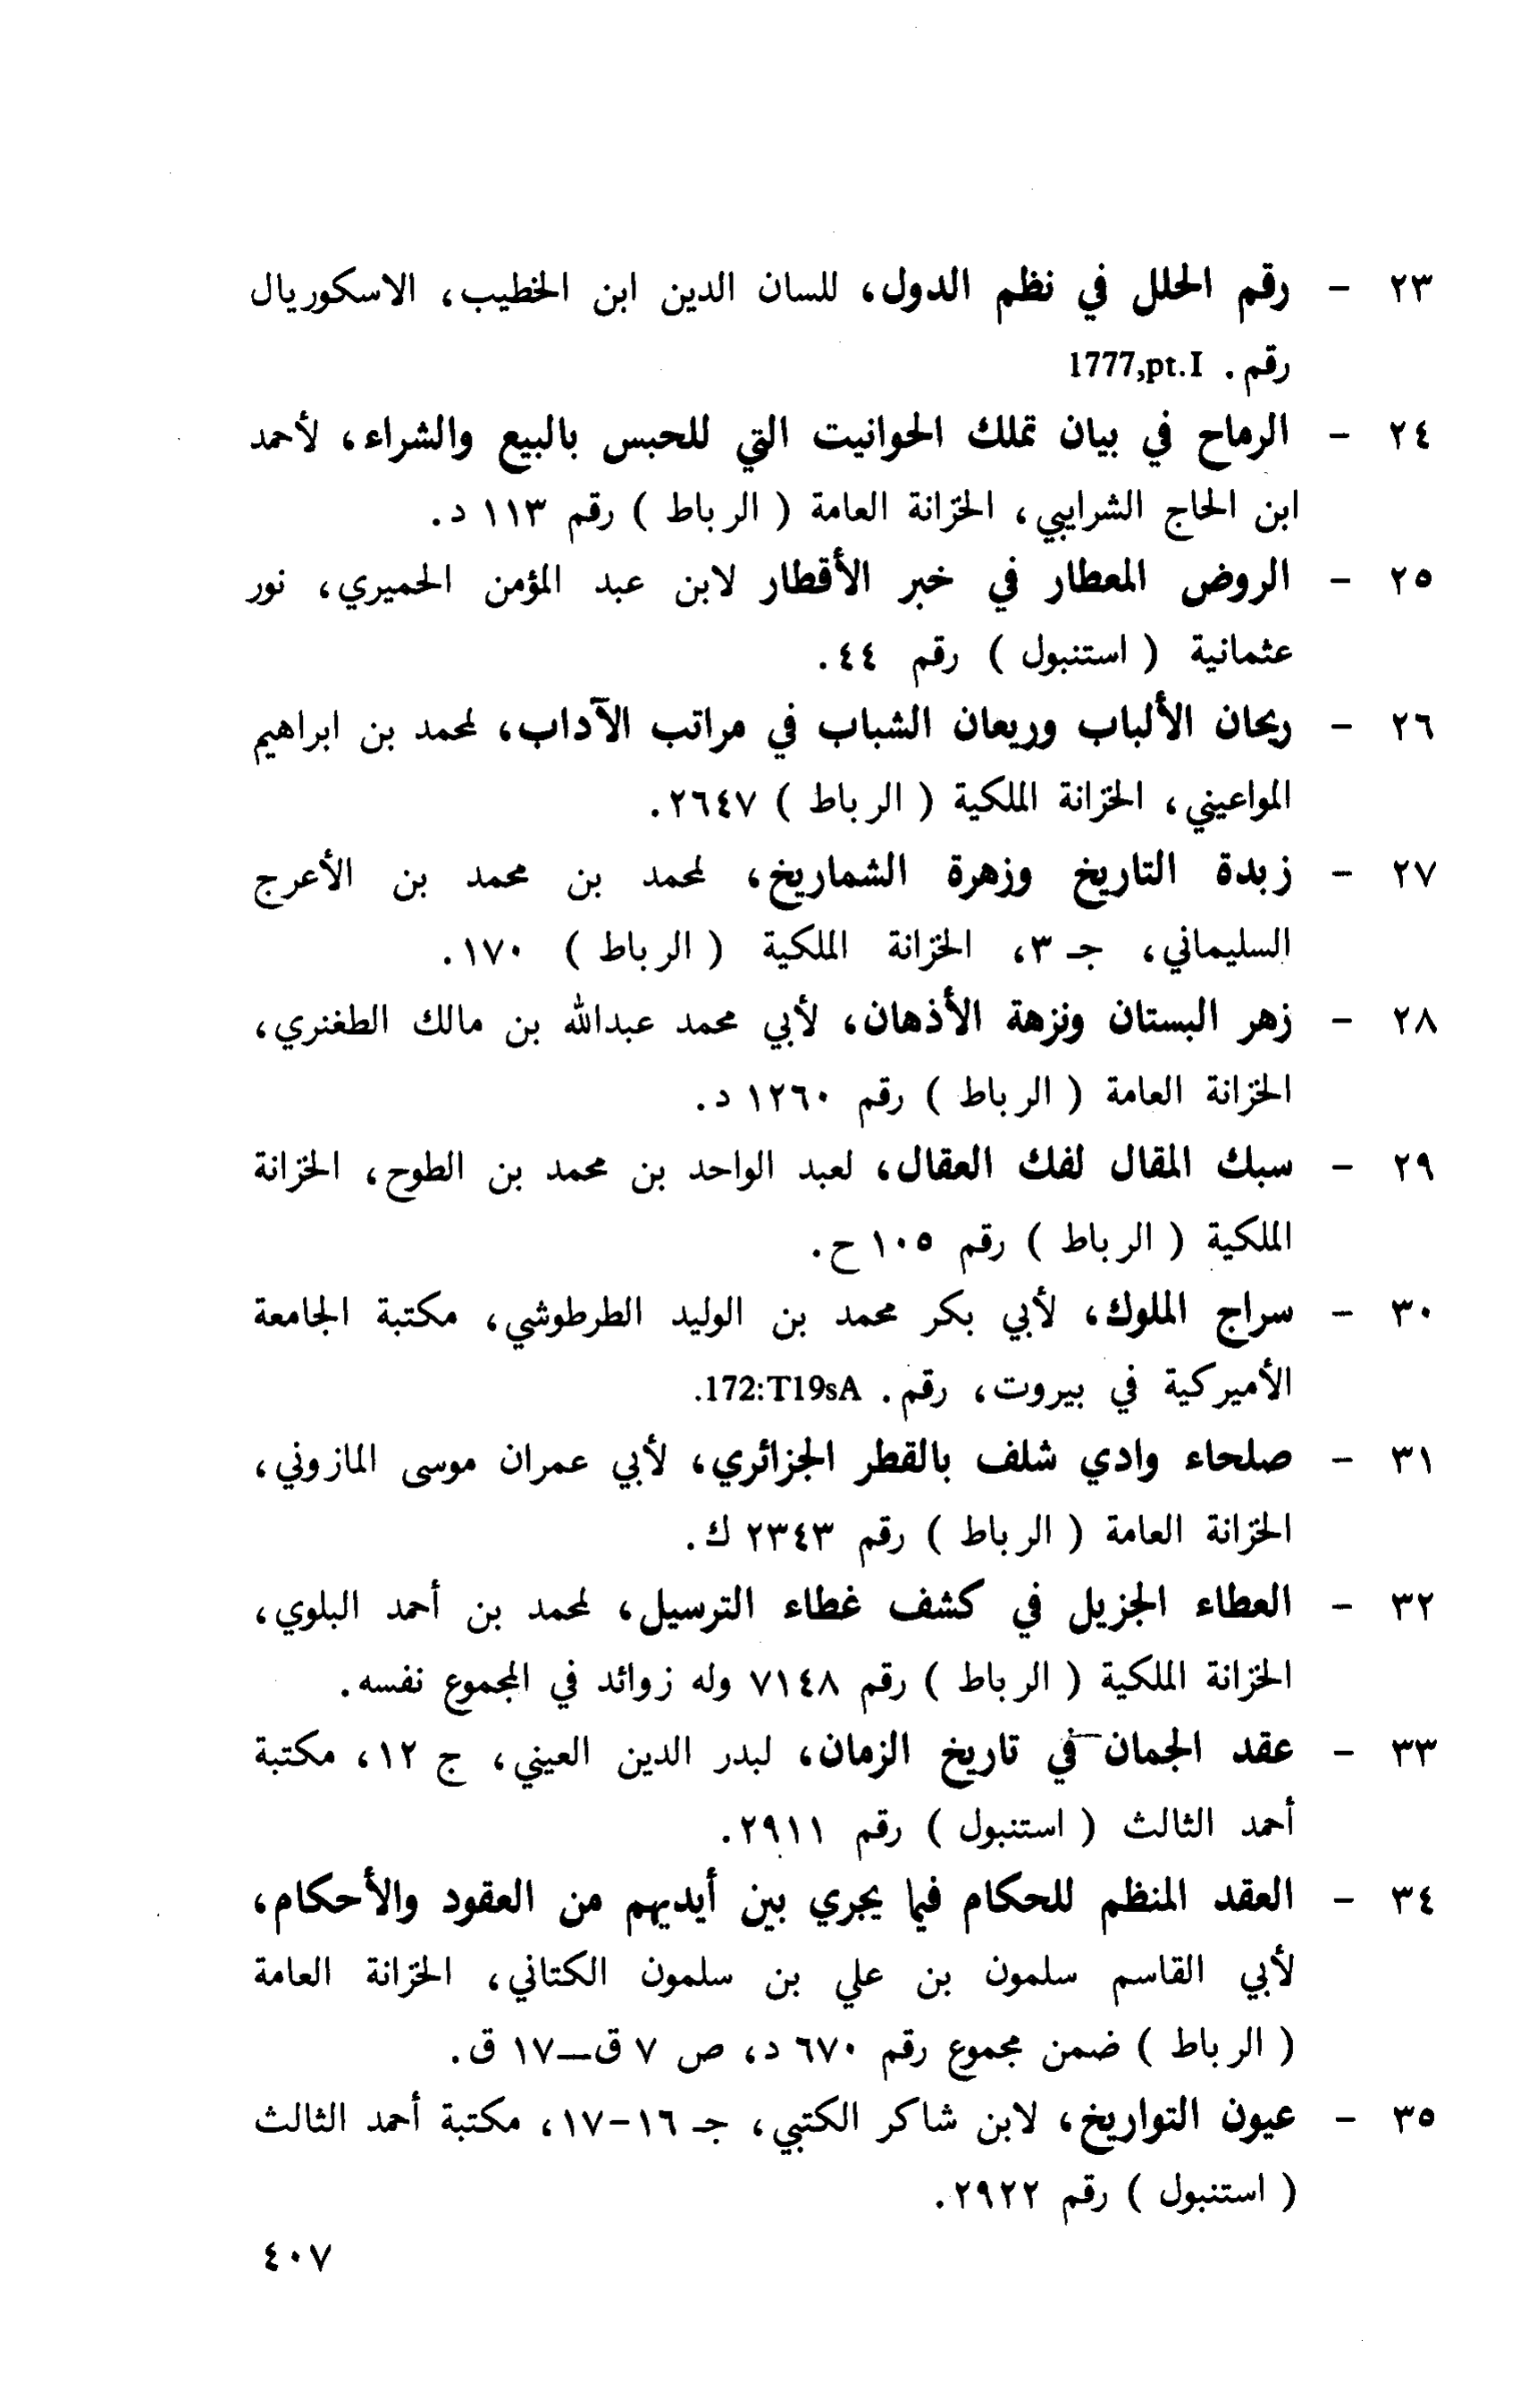 ٢٣ - رقم الحلل في نظم الدول، للسان الدين ابن الخطيب، الاسكوريال
رقم . 1777,pt.I
٢٤ - الرماح في بيان تملك الحوانيت التي للحبس بالبيع والشراء، لأحمد
ابن الحاج الشرايبي، الخزانة العامة ( الرباط ) رقم ١١٣ د.
٢٥ - الروض المعطار في خبر الأقطار لابن عبد المؤمن الحميري، نور
عثمانية ( استنبول ) رقم ٤٤.
٢٦ - ريحان الألباب وريعان الشباب في مراتب الآداب، لمحمد بن ابراهيم
المواعيني، الخزانة الملكية ( الرباط ) ٢٦٤٧.
٢٧ - زبدة التاريخ وزهرة الشماريخ، لمحمد بن محمد بن الأعرج
السليماني، جـ ٣، الخزانة الملكية ( الرباط ) ١٧٠.
٢٨ - زهر البستان ونزهة الأذهان، لأبي محمد عبدالله بن مالك الطغنري،
الخزانة العامة ( الرباط ) رقم ١٢٦٠ د.
٢٩ - سبك المقال لفك العقال، لعبد الواحد بن محمد بن الطوح، الخزانة
الملكية ( الرباط ) رقم ١٠٥ ح.
٣٠ - سراج الملوك، لأبي بكر محمد بن الوليد الطرطوشي، مكتبة الجامعة
الأميركية في بيروت، رقم . 172:T19sA.
٣١ - صلحاء وادي شلف بالقطر الجزائري، لأبي عمران موسى المازوني،
الخزانة العامة ( الرباط ) رقم ٢٣٤٣ ك.
٣٢ - العطاء الجزيل في كشف غطاء الترسيل، لمحمد بن أحمد البلوي،
الخزانة الملكية ( الرباط ) رقم ٧١٤٨ وله زوائد في المجموع نفسه.
٣٣ - عقد الجمان في تاريخ الزمان، لبدر الدين العيني، ج ١٢، مكتبة
أحمد الثالث ( استنبول ) رقم ٢٩١١.
٣٤ - العقد المنظم للحكام فيما يجري بين أيديهم من العقود والأحكام،
لأبي القاسم سلمون بن علي بن سلمون الكتاني، الخزانة العامة
( الرباط ) ضمن مجموع رقم ٦٧٠ د، ص ٧ ق—١٧ ق.
٣٥ - عيون التواريخ، لابن شاكر الكتبي، جـ ١٦-١٧، مكتبة أحمد الثالث
( استنبول ) رقم ٢٩٢٢.
٤٠٧